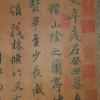 九年歲在癸丑暮
稽山陰之蘭亭
畢至少長咸集
領茂林脩竹又有